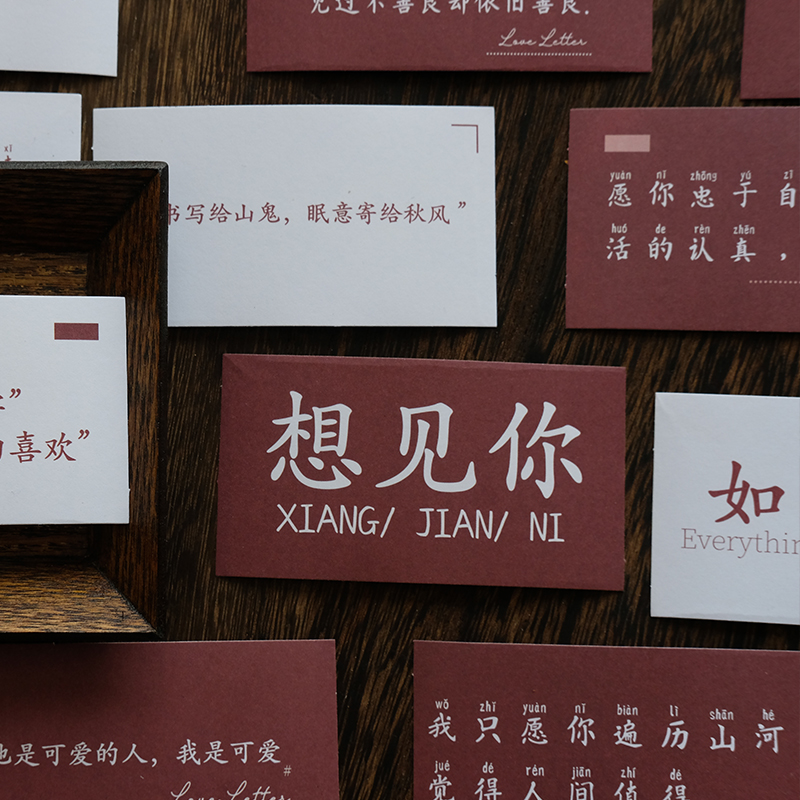 见过不善良却依旧善良.
Love Letter
xī
书写给山鬼，眠意寄给秋风”
yuàn nǐ zhōng yú zì
愿你忠于自
huó de rèn zhēn
活的认真，
”
喜欢”
想见你
XIANG/ JIAN/ NI
如
Everythin
他是可爱的人，我是可爱
#
Love Letter
wǒ zhǐ yuàn nǐ biàn lì shān hé
我只愿你遍历山河
jué dé rén jiān zhí dé
觉得人间值得